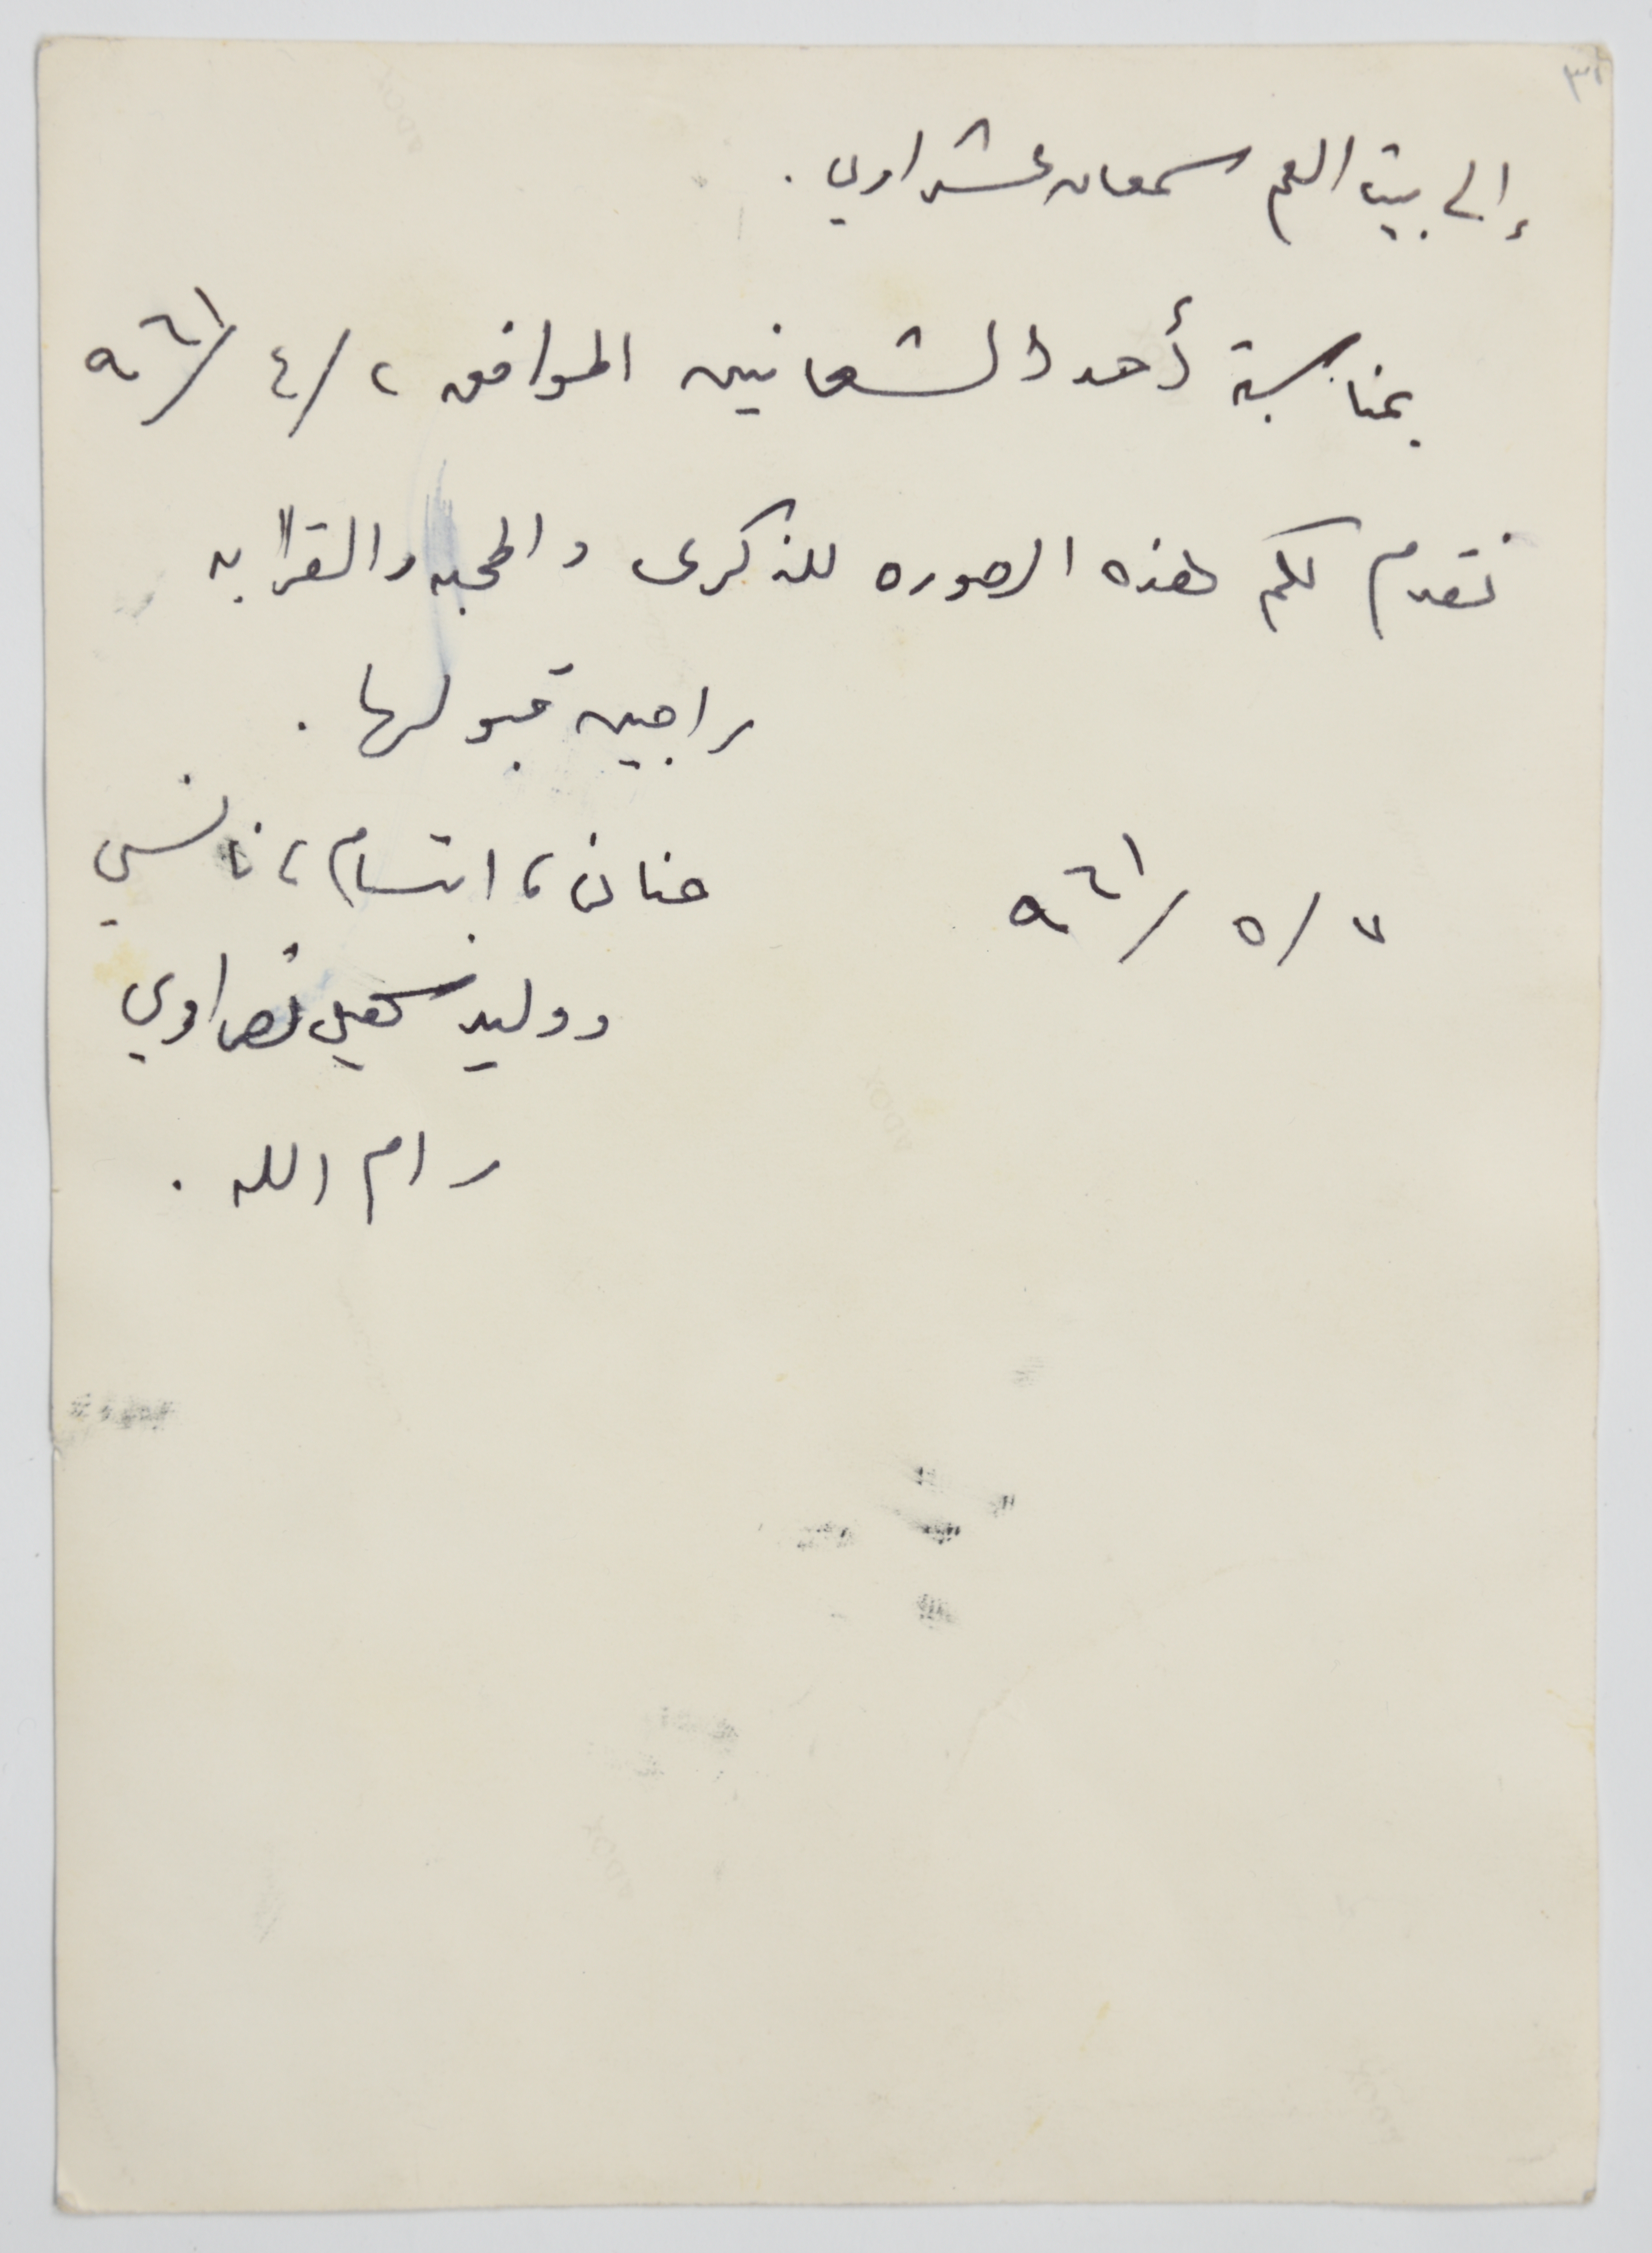 إلى بيت العم سمعان عشراوي .
بمناسبة أحد الشعانين الموافق ٢ / ٤ / ٩٦١
نقدم لكم هذه الصوره للذكرى والمحبه والقرابه
راجين قبولها .
حنان ، ابتسام ، نانسي
٧ / ٥ / ٩٦١
ووليد نصراوي
رام الله .